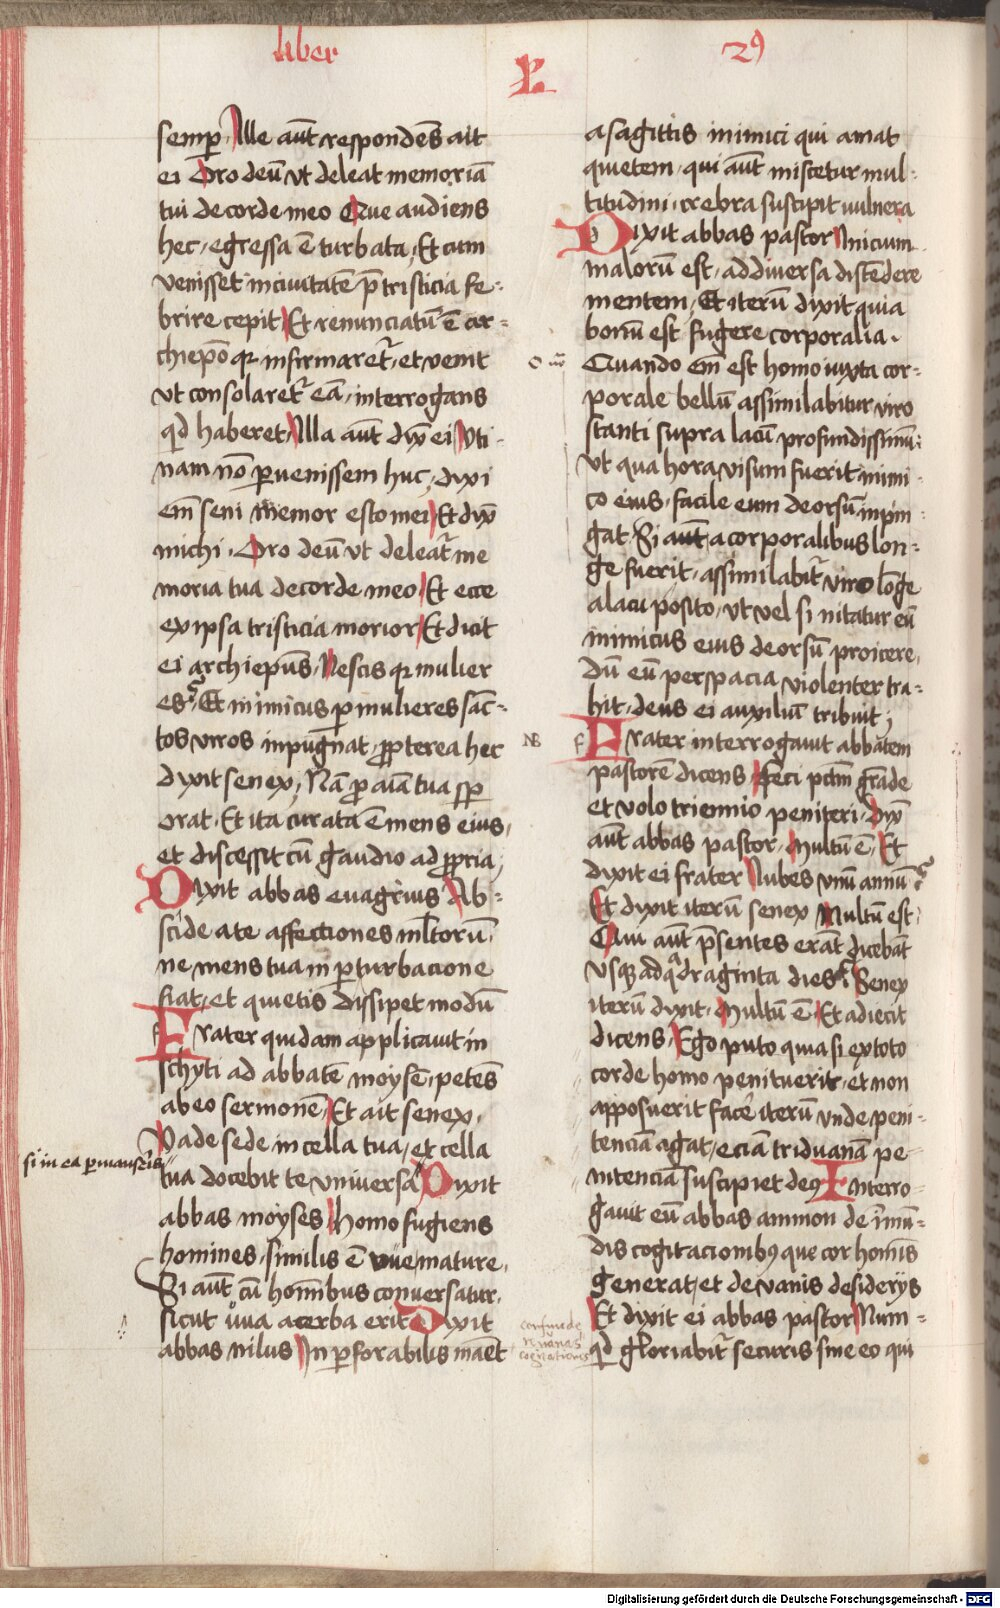 liber
2⁹
semꝑ Ille aūt respondēs ait
ei Oro deū vt deleat memoriā
tui de corde meo Que audiens
hec, egressa ē turbata, Et cum
venisset in ciuitatē p̄ tristicia fe-
brire cepit Et renunciatū ē ar-
chiepō qꝛ infirmaretᷣ, et venit
vt consolaretᷣ eā, interrogans
qd haberet, Illa aūt dix̄ ei Uti-
nam nō ꝑuenissem huc, dixi
em̄ seni Memor esto mei Et dix̄
michi. Oro deū vt deleatᷣ me
moria tua de corde meo Et ecce
ex ipsa tristicia morior Et dicit
ei archiepūs, Nescis qꝛ mulier
es? Et inimicus ꝑ mulieres sāc-
tos viros inpūgnat, ꝓpterea hec
dixit senex, Nā ꝓ aīa tua sꝑ
orat. Et ita curata ē mens eius,
et discessit cū gaudio ad ꝓpria,
Dixit abbas euagrius Ab-
scide a te affectiones ml̄torū,
ne mens tua in ꝑturbacione
fiat, et quietis dissipet modū
Frater quidam applicauit in
schyti ad abbatē moysē, petēs
ab eo sermonē, Et ait senex,
Vade sede in cella tua, et cella
si in ea ꝑmanseris
tua docebit te vniuersa Dixit
abbas moyses Homo fugiens
homines, similis ē vue mature,
Si aūt cū hom̄ibus conuersatur,
sicut vua acerba erit Dixit
abbas nilus Inꝑforabilis māet
a sagittis inimici qui amat
quietem, qui aūt miscetur mul-
titudini, crebra suscipit uulnera
Dixit abbas pastor Inicium
malorū est, ad diuersa distēdere
mentem, Et iterū dixit quia
bonū est fugere corporalia.
Quando em̄ est homo iuxta cor-
porale bellū assimilabitur viro
stanti supra lacū profundissimū:
vt qua hora visum fuerit inimi-
co eius, facile eum deorsū inpin-
gat. Si aūt a corporalibus lon-
ge fuerit, assimilabitᷣ viro lōge
a lacu posito, vt vel si nitatur eū
inimicus eius deorsū proicere,
dū eū per spacia violenter tra-
hit, deus ei auxiliū tribuit;
NB
Frater interrogauit abbatem
pastorē dicens, Feci pctm̄ grāde
et volo triennio peniteri, Dix̄
aūt abbas pastor, Multū ē, Et
dixit ei frater Iubes vnū annū?
Et dixit iterū senex Multū est,
Qui aūt p̄sentes erāt dicebāt
vsqꝫ ad quadraginta dies? Senex
iterū dixit, Multū ē, Et adiecit
dicens, Ego puto quia si ex toto
corde homo penituerit, et non
apposuerit facē iterū vnde peni-
tenciā agat, eciā triduanā pe-
nitenciā suscipiet deꝰ Interro-
gauit eū abbas ammon de īmū-
dis cogitacionibꝰ que cor homīs
generat, et de vanis desiderijs
Et dixit ei abbas pastor Num-
qd gloriabitᷣ securis sine eo qui
Digitalisierung gefördert durch die Deutsche Forschungsgemeinschaft - DFG